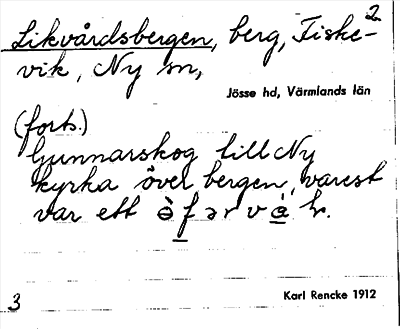 2
Likvårdsbergen, berg, Fiske-
vik, Ny sn,
Jösse hd, Värmlands län
(forts.)
Gunnarskog till Ny
kyrka över bergen, varest
var ett
3
Karl Rencke 1912